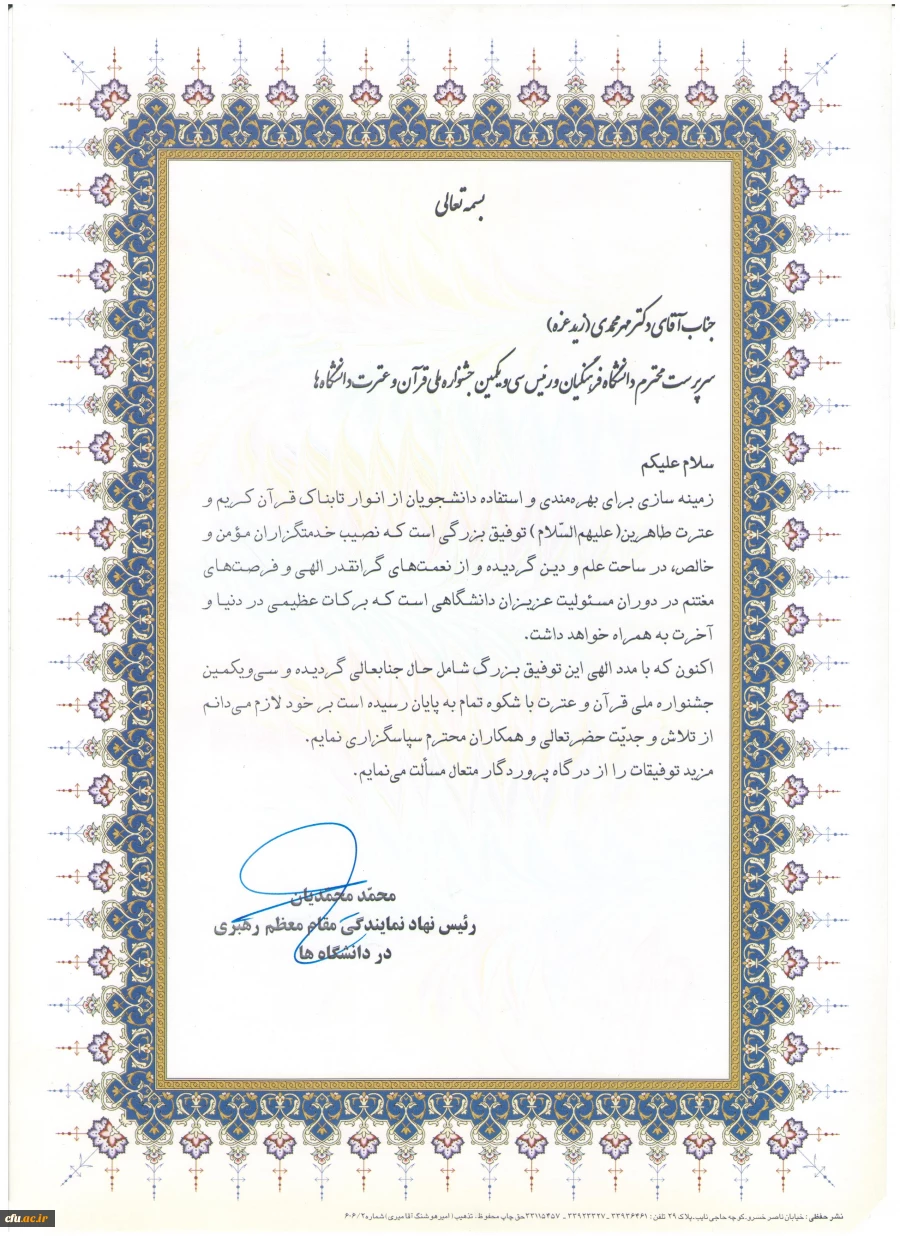 بسمه تعالی
جناب آقای دکتر مهرمحمدی (زید عزه)
سرپرست محترم دانشگاه فرهنگیان و رئیس سی و یکمین جشنواره ملی قرآن و عترت دانشگاه ها
سلام علیکم
زمینه سازی برای بهره‌مندی و استفاده دانشجویان از انوار تابناک قرآن کریم و
عترت طاهرین( علیهم‌السّلام ) توفیق بزرگی است که نصیب خدمتگزاران مؤمن و
خالص، در ساحت علم و دین گردیده و از نعمت‌های گرانقدر الهی و فرصت‌های
مغتنم در دوران مسئولیت عزیزان دانشگاهی است که برکات عظیمی در دنیا و
آخرت به همراه خواهد داشت.
اکنون که با مدد الهی این توفیق بزرگ شامل حال جنابعالی گردیده و سی‌ویکمین
جشنواره ملی قرآن و عترت با شکوه تمام به پایان رسیده است بر خود لازم می‌دانم
از تلاش و جدیّت حضرتعالی و همکاران محترم سپاسگزاری نمایم.
مزید توفیقات را از درگاه پروردگار متعال مسألت می‌نمایم.
محمّد محمدیان
رئیس نهاد نمایندگی مقام معظم رهبری
در دانشگاه ها
نشر حفظی : خیابان ناصر خسرو، کوچه حاجی نایب، پلاک ۲۹ تلفن : ۳۳۹۳۶۴۶۱ - ۳۳۹۲۳۳۲۷ - ۳۳۱۱۵۴۵۷ حق چاپ محفوظ : تذهیب ( امیرهوشنگ آقامیری ) شماره ۶۰۶/۲
cfu.ac.ir